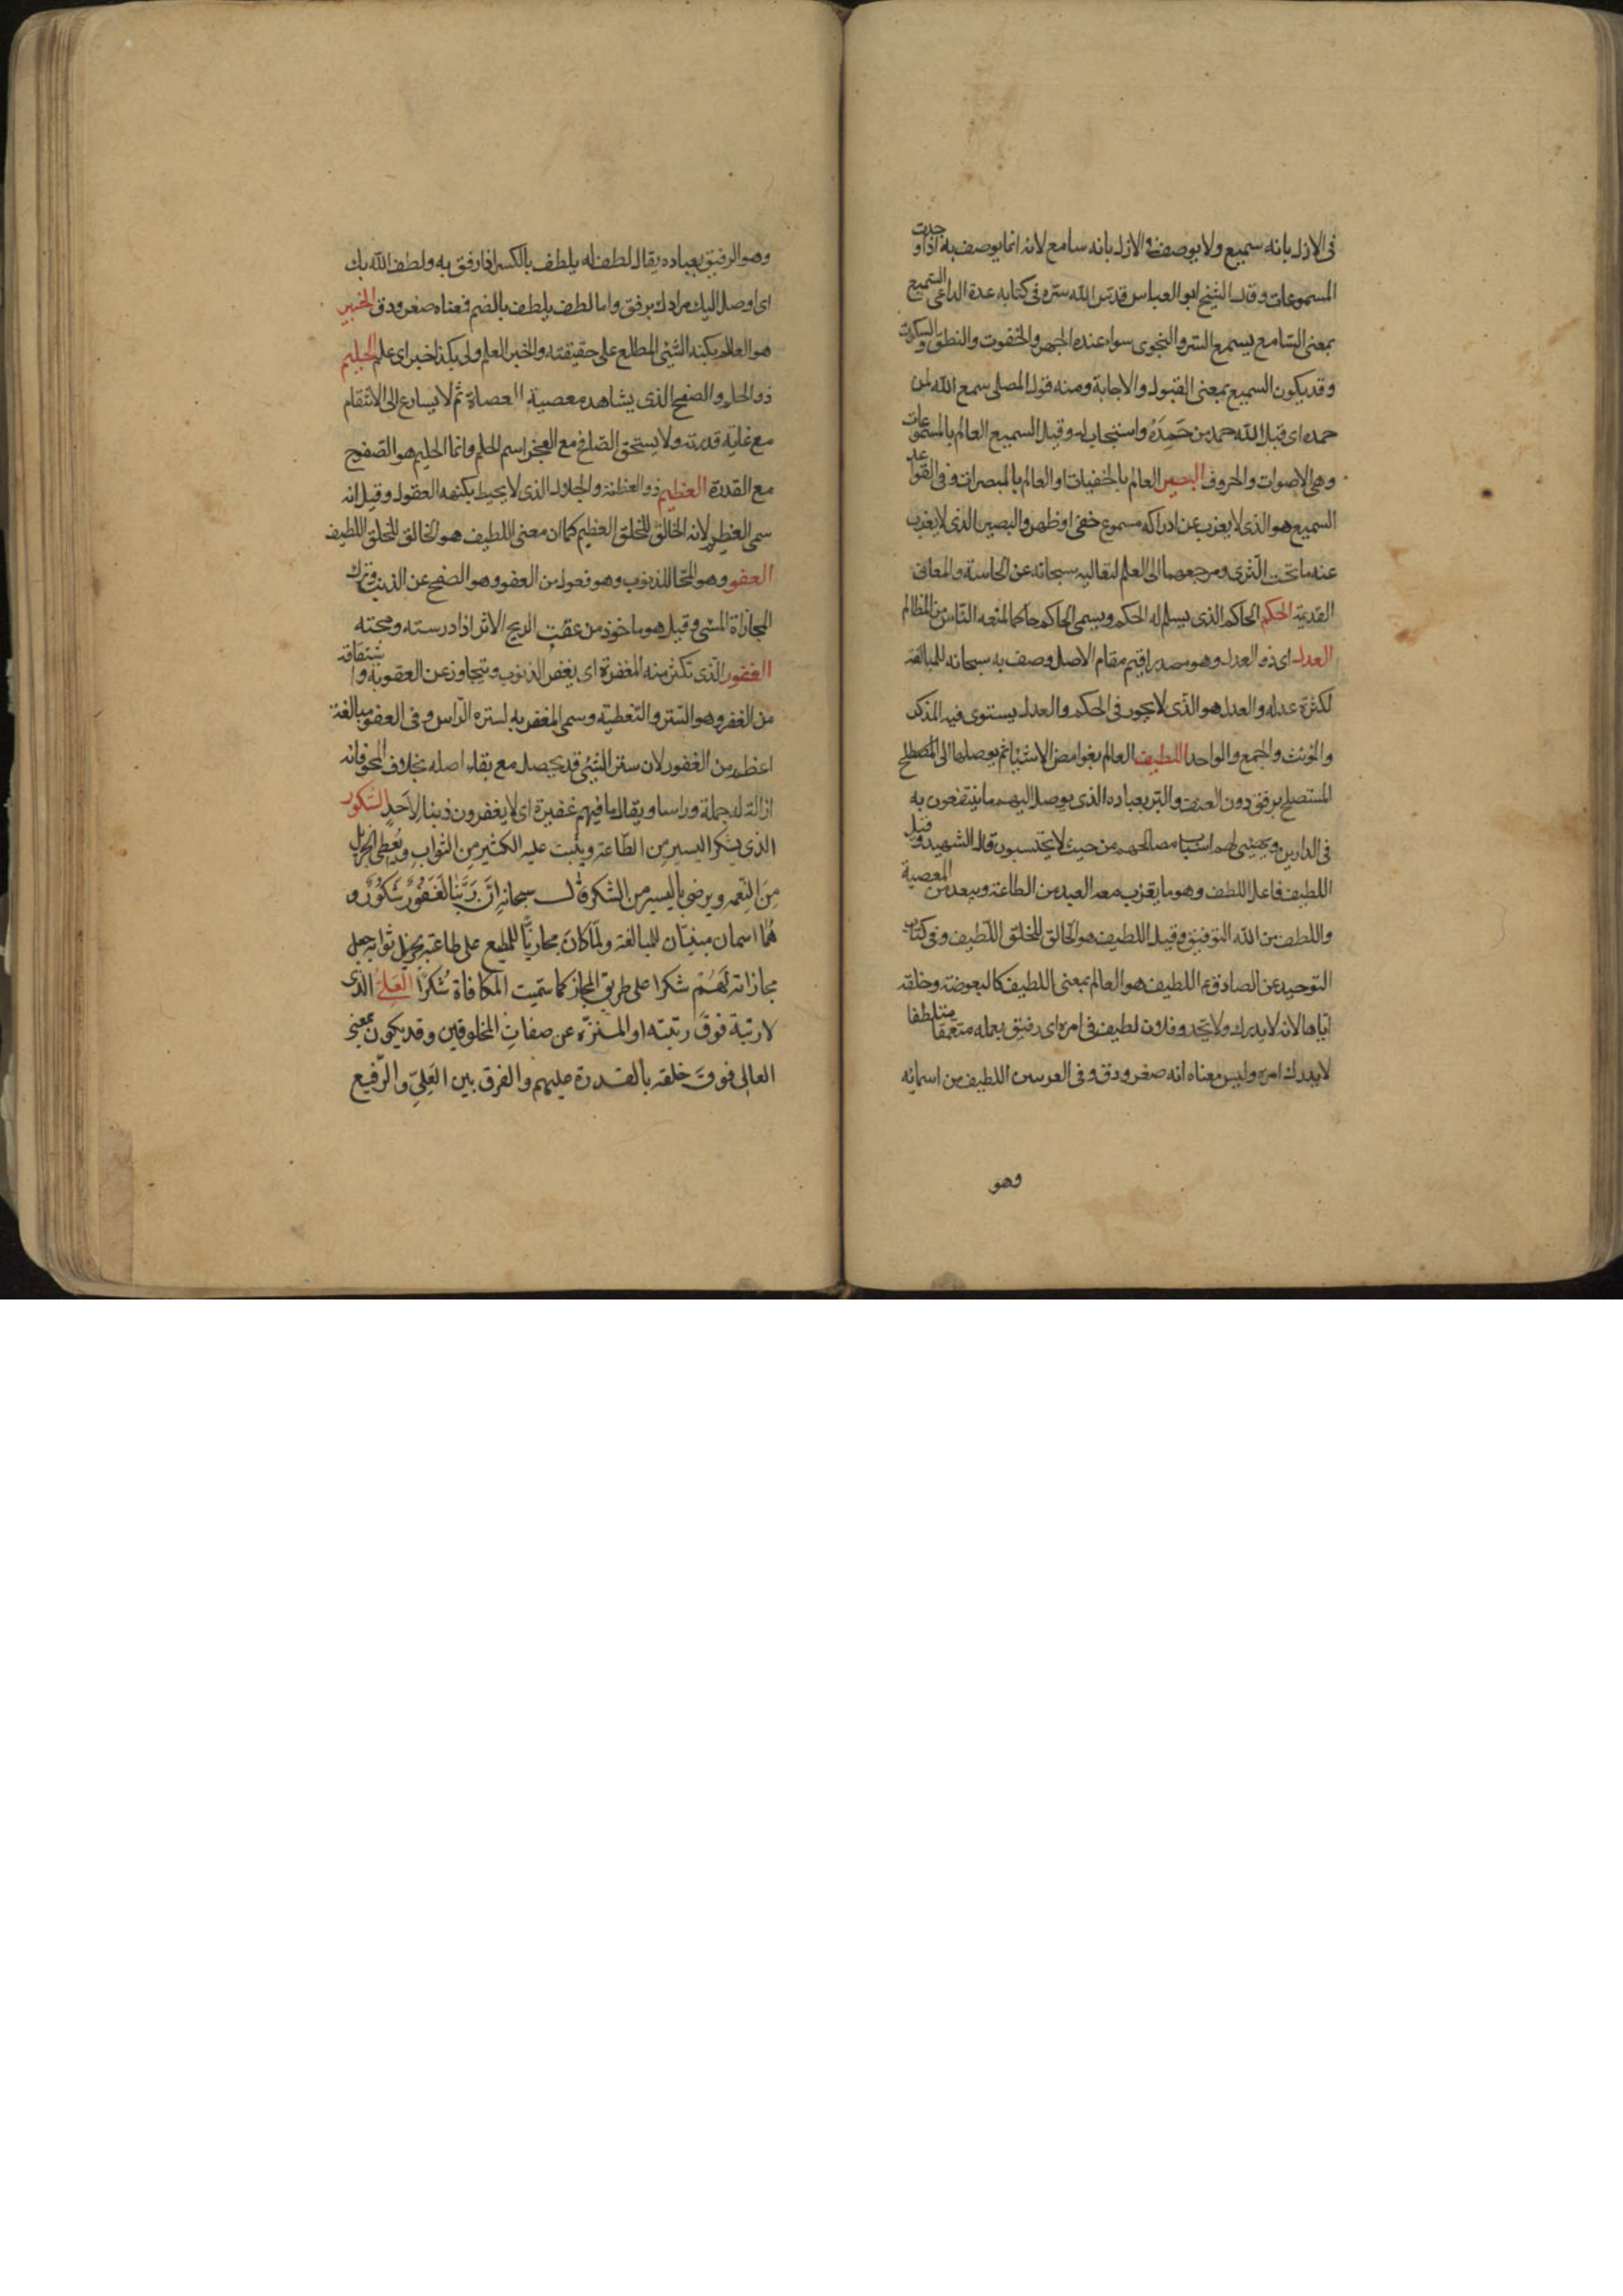 فى الازل بانه سميع ولا يوصف فى الازل بانه سامع لانه انما يوصف به اذا وجدت
المسموعات وقال الشيخ ابو العباس قدس الله سره فى كتابه عدة الداعى السميع
بمعنى السامع يسمع السر والنجوى سواء عنده الجهر والخفوت والنطق والسكوت
وقد يكون السميع بمعنى القبول والاجابة ومنه قول المصلى سمع الله لمن
حمده اى قبل الله حمد من حَمِدَهُ واستجاب له وقيل السميع العالم بالمسموعات
وهى الاصوات والحروف البصير العالم بالخفيات او العالم بالمبصرات وفى القواعد
السميع هو الذى لا يعزب عن ادراكه مسموع خفى او ظهر والبصير الذى لا يعزب
عنه ما تحت الثرى ومرجعهما الى العلم لتعاليه سبحانه عن الحاسة والمعانى
القديمة الحكم الحاكم الذى يسلم له الحكم ويسمى الحاكم حاكما لمنعه الناس من المظالم
العدل اى ذو العدل وهو مصدر اقيم مقام الاصل وصف به سبحانه للمبالغة
لكثرة عدله والعدل هو الذى لا يجور فى الحكم والعدل يستوى فيه المذكر
والمونث والجمع والواحد اللطيف العالم بغوامض الاشياء ثم يوصلها الى المصطلح
المستصلح برفق دون العنف والبر بعباده الذى يوصل اليهم ما ينتفعون به
فى الدارين ويهيئ لهم اسباب مصالحهم من حيث لا يحتسبون قال الشهيد وقيل
اللطيف فاعل اللطف وهو ما يقرب معه العبد من الطاعة ويبعد من المعصية
واللطف من الله التوفيق وقيل اللطيف هو الخالق للخلق اللطيف وفى كتاب
التوحيد عن الصادق ع اللطيف هو العالم بمعنى اللطيف كالبعوضة وخلقه
اياها لانه لا يدرك ولا يحد وفلان لطيف فى امره اى رفيق بعمله متعمقا متلطفا
لا يدرك امره وليس معناه انه صغر ودق وفى اللطيف من اسمائه
وهو
وهو الرفيق بعباده يقال لطف له يلطف بالكسر اذا رفق به ولطف الله بك
اى اوصل اليك مرادك برفق واما لطف يلطف بالضم فمعناه صغر ودق الخبير
هو العالم بكنه الشئ المطلع على حقيقته والخبر العلم ولى بكذا خبر اى علم الحليم
ذو الحلم والصفح الذى يشاهد معصية العصاة ثم لا يسارع الى الانتقام
مع غاية قدرته ولا يستحق الصافح مع العجز اسم الحلم وانما الحليم هو الصفوح
مع القدرة العظيم ذو العظمة والجلال الذى لا يحيط بكنهه العقول وقيل انه
سمى العظيم لانه الخالق للخلق العظيم كما ان معنى اللطيف هو الخالق للخلق اللطيف
العفو وهو المحّا للذنوب وهو فعول من العفو وهو الصفح عن الذنب وترك
المجازاة المسئ وقيل هو ماخوذ من عفت الريح الاثر اذا درسته ومحته
الغفور الذى تكثر منه المغفرة اى يغفر الذنوب ويتجاوز عن العقوبة واشتقاقه
من الغفر وهو الستر والتغطية وسمى المغفر به لستره الراس وفى العفو مبالغة
اعظم من الغفور لان ستر الشئ قد يحصل مع بقاء اصله بخلاف المحو فانه
ازالة له جملة وراسا ويقال ما فيهم غفيرة اى لا يغفرون ذنبا لِاَحَدٍ الشكور
الذى يشكر اليسير مِن الطّاعة ويثبت عليه الكثير مِن الثواب ويُعطى الجزيل
مِنَ النِعمه ويرضى باليسير من الشكر قال سبحانه اِنَّ رَبَّنا لَغَفُورٌ شَكُورٌ و
هُما اسمان مبنيّان للمبالغة ولمّا كانَ مجازيًا للمطيع على طاعته بجزيل ثوابه جعل
مجازاته لَهُمْ شكرا على طريق المجاز كما سمّيت المكافاة شُكرًا العَلِىُّ الذى
لا رتبة فوقَ رتبته او المـنزّه عن صفاتِ المخلوقين وقد يكون بمعنى
العالى فوقَ خلقه بالقـدرة عليهم والفرق بين العَلِىّ والرّفيع